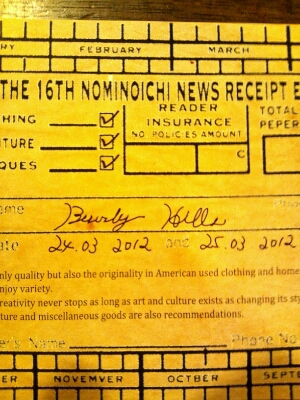 RY FEBRUARY MARCH
THE 16TH NOMINOICHI NEWS RECEIPT E
HING
TURE
QUES
READER
INSURANCE
NO POLICIES AMOUNT
C
TOTAL
PEPER
ame Beverly Hills
ate 24.03 2012 age 25.03 2012
nly quality but also the originality in American used clothing and home
enjoy variety.
reativity never stops as long as art and culture exists as changing its sty
ture and miscellaneous goods are also recommendations.
er's Name Phone No
ER NOVEMVER OCTBER SEPTE